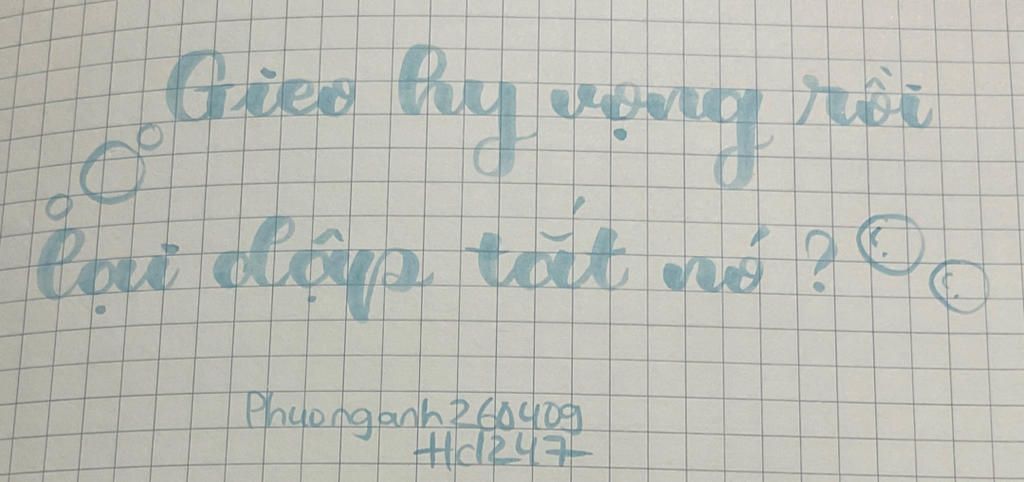 Gieo hy vọng rồi
lại dập tắt nó ?
Phuonganh260409
Hd247